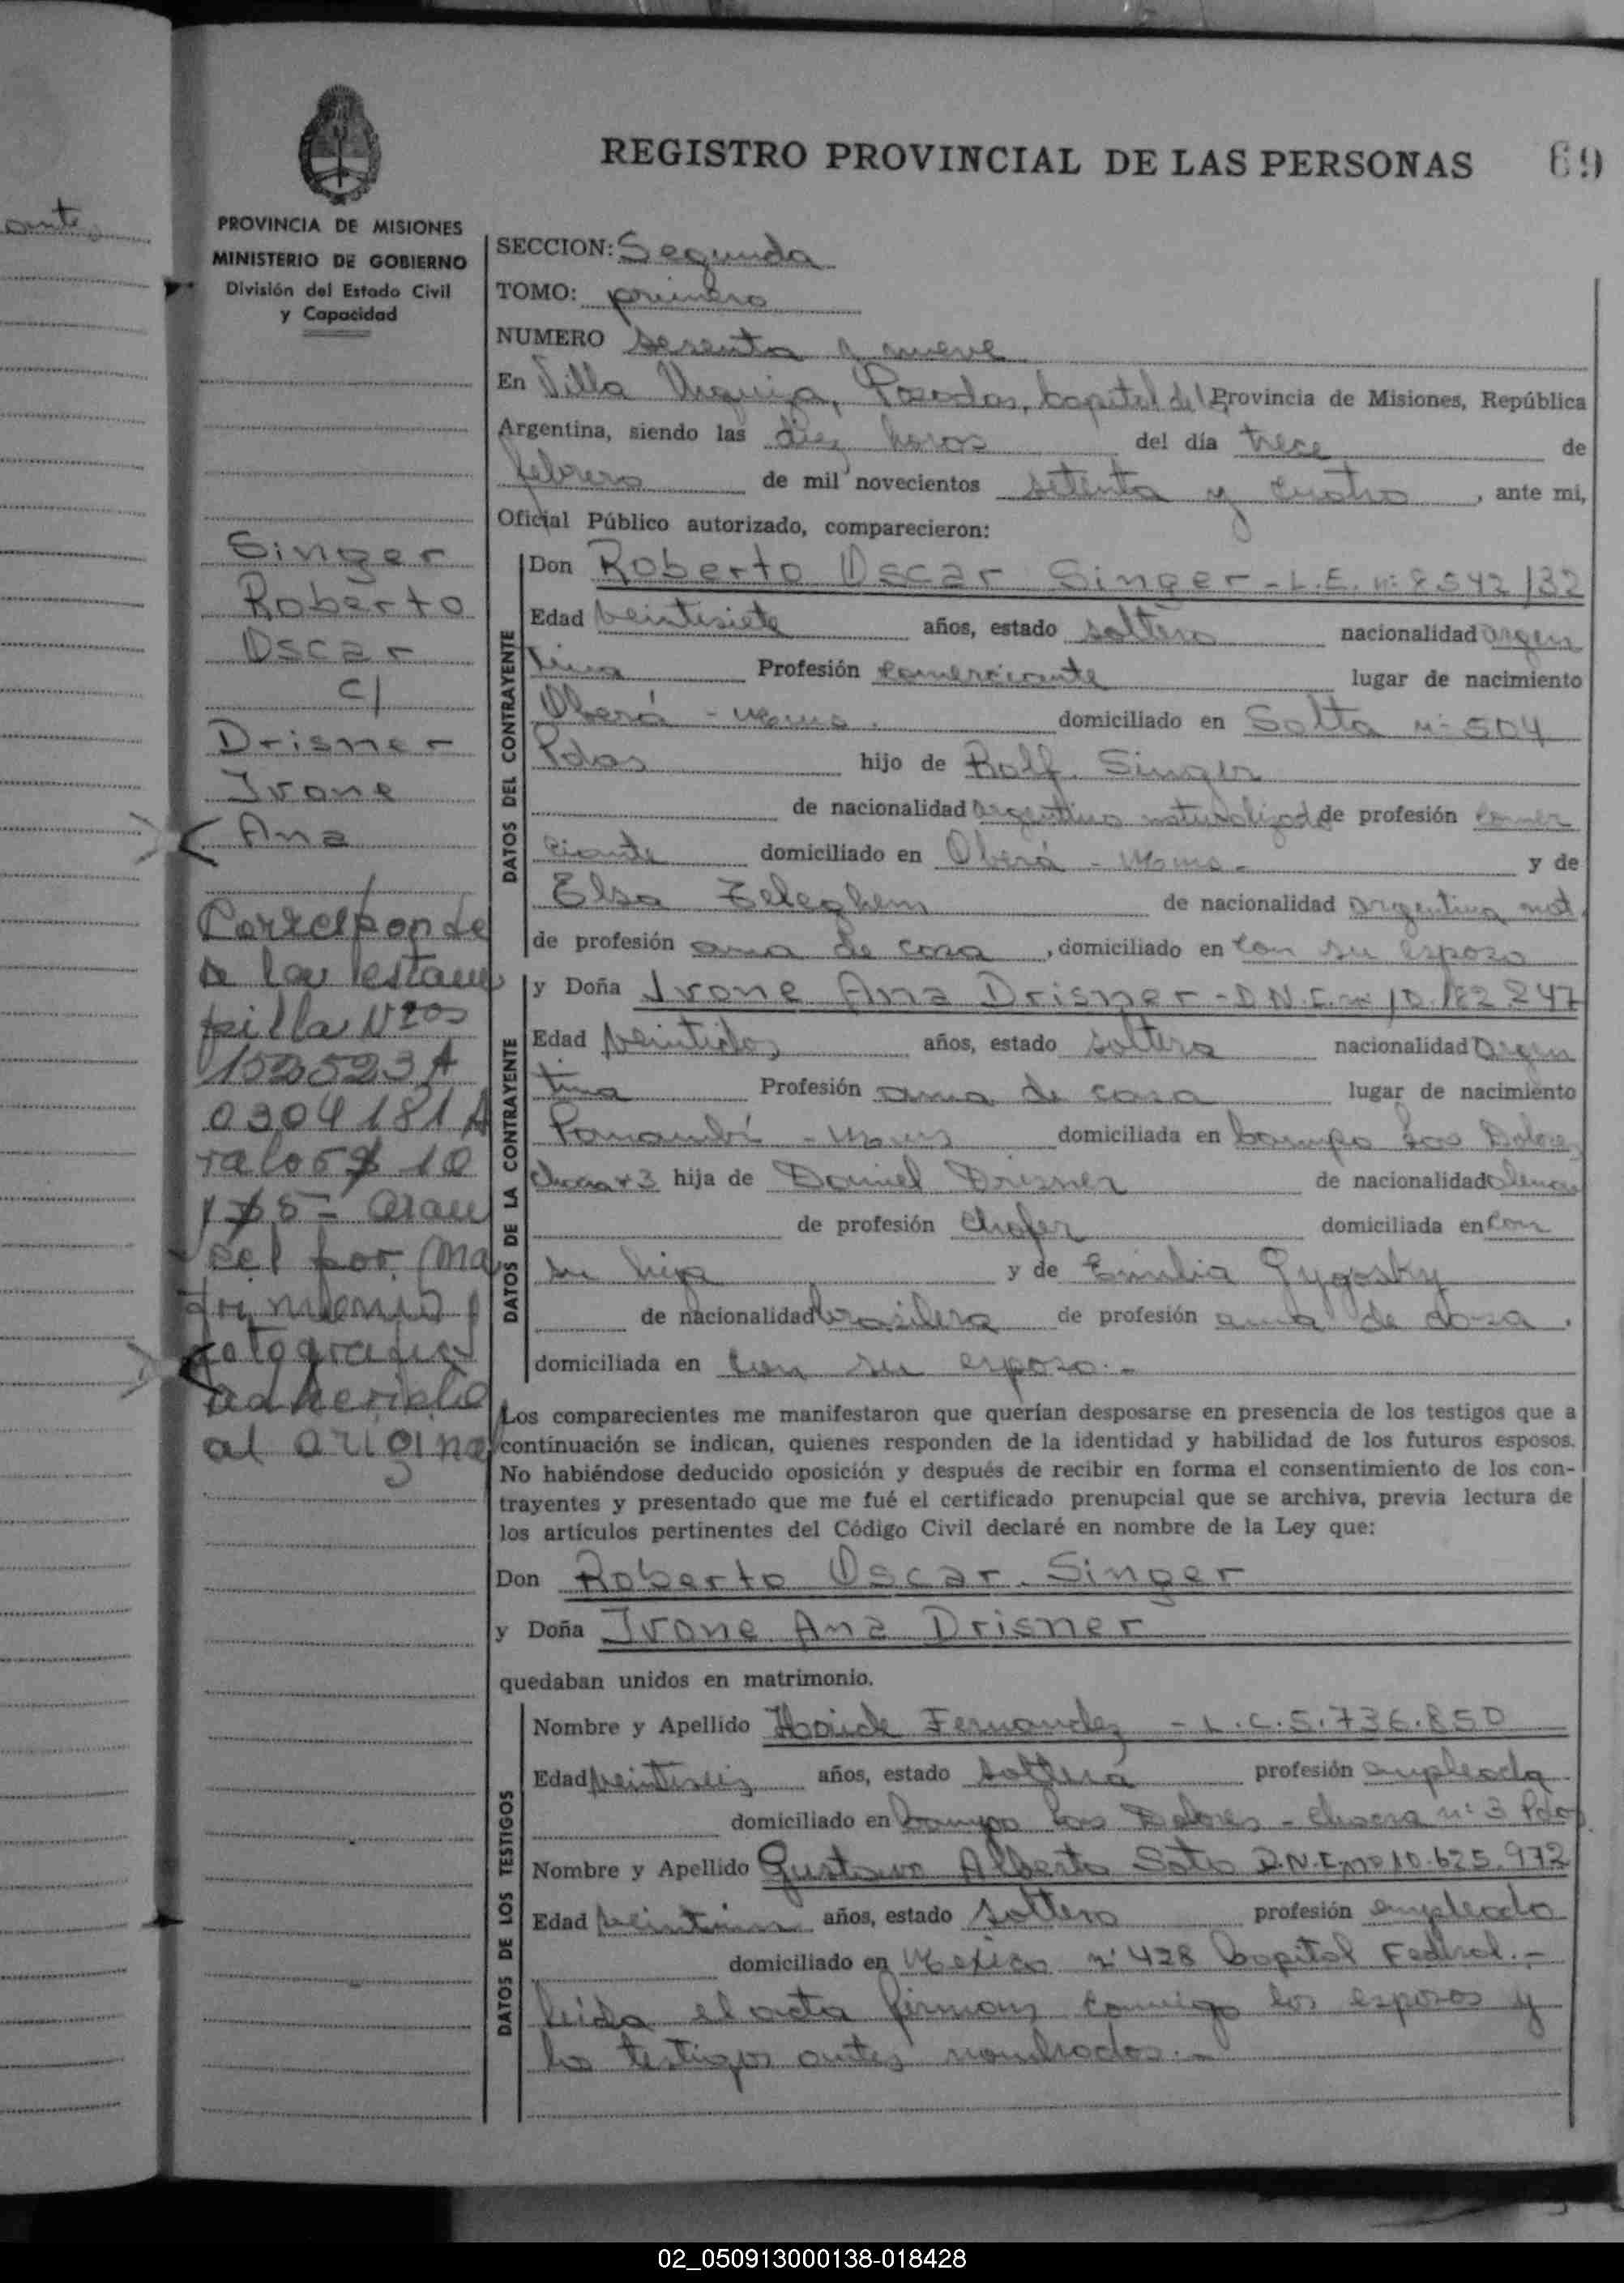 REGISTRO PROVINCIAL DE LAS PERSONAS
69
PROVINCIA DE MISIONES
MINISTERIO DE GOBIERNO
División del Estado Civil
y Capacidad
Singer
Roberto
Oscar
c/
Drisner
Ivone
Ana
Corresponde
a la estam
pilla Nros
0304181 A
10
por Ma
trimonio
fotografia
adherida
al original
SECCION: Segunda
TOMO: primero
NUMERO sesenta y nueve
En Villa Urquiza, Posadas, Capital de la Provincia de Misiones, República
Argentina, siendo las diez horas del día trece de
febrero de mil novecientos setenta y cuatro, ante mi,
Oficial Público autorizado, comparecieron:
DATOS DEL CONTRAYENTE
Don Roberto Oscar Singer - L.E. nº
Edad veintisiete años, estado soltero nacionalidad argen
tina Profesión comerciante lugar de nacimiento
Oberá - Mnes. domiciliado en Salta nº 504
Pdas hijo de Rolf Singer
de nacionalidad argentino naturalizado de profesión comer
ciante domiciliado en Oberá - Mnes - y de
Elsa de nacionalidad argentina nat.
de profesión ama de casa, domiciliado en con su esposo
DATOS DE LA CONTRAYENTE
y Doña Ivone Ana Drisner - D.N.I. nº 10.182.247
Edad veintidos años, estado soltera nacionalidad argen
tina Profesión ama de casa lugar de nacimiento
Panambí - Mnes domiciliada en Campo Las Dolores
chacra 3 hija de Daniel Drisner de nacionalidad
de profesión chofer domiciliada en con
su hija y de Emilia
de nacionalidad brasilera de profesión ama de casa.
domiciliada en con su esposo.-
Los comparecientes me manifestaron que querían desposarse en presencia de los testigos que a
continuación se indican, quienes responden de la identidad y habilidad de los futuros esposos.
No habiéndose deducido oposición y después de recibir en forma el consentimiento de los con-
trayentes y presentado que me fué el certificado prenupcial que se archiva, previa lectura de
los artículos pertinentes del Código Civil declaré en nombre de la Ley que:
Don Roberto Oscar Singer
y Doña Ivone Ana Drisner
quedaban unidos en matrimonio.
DATOS DE LOS TESTIGOS
Nombre y Apellido Haide Fernandez - L.C. 5.736.850
Edad veintiseis años, estado soltera profesión empleada
domiciliado en Campo Las Dolores - chacra nº 3 Pdas
Nombre y Apellido Gustavo Alberto Soto D.N.I. nº 10.625.972
Edad años, estado soltero profesión empleado
domiciliado en Mexico nº 428 Capital Federal.-
leida el acta firman conmigo los esposos y
los testigos antes nombrados.-
02_050913000138-018428